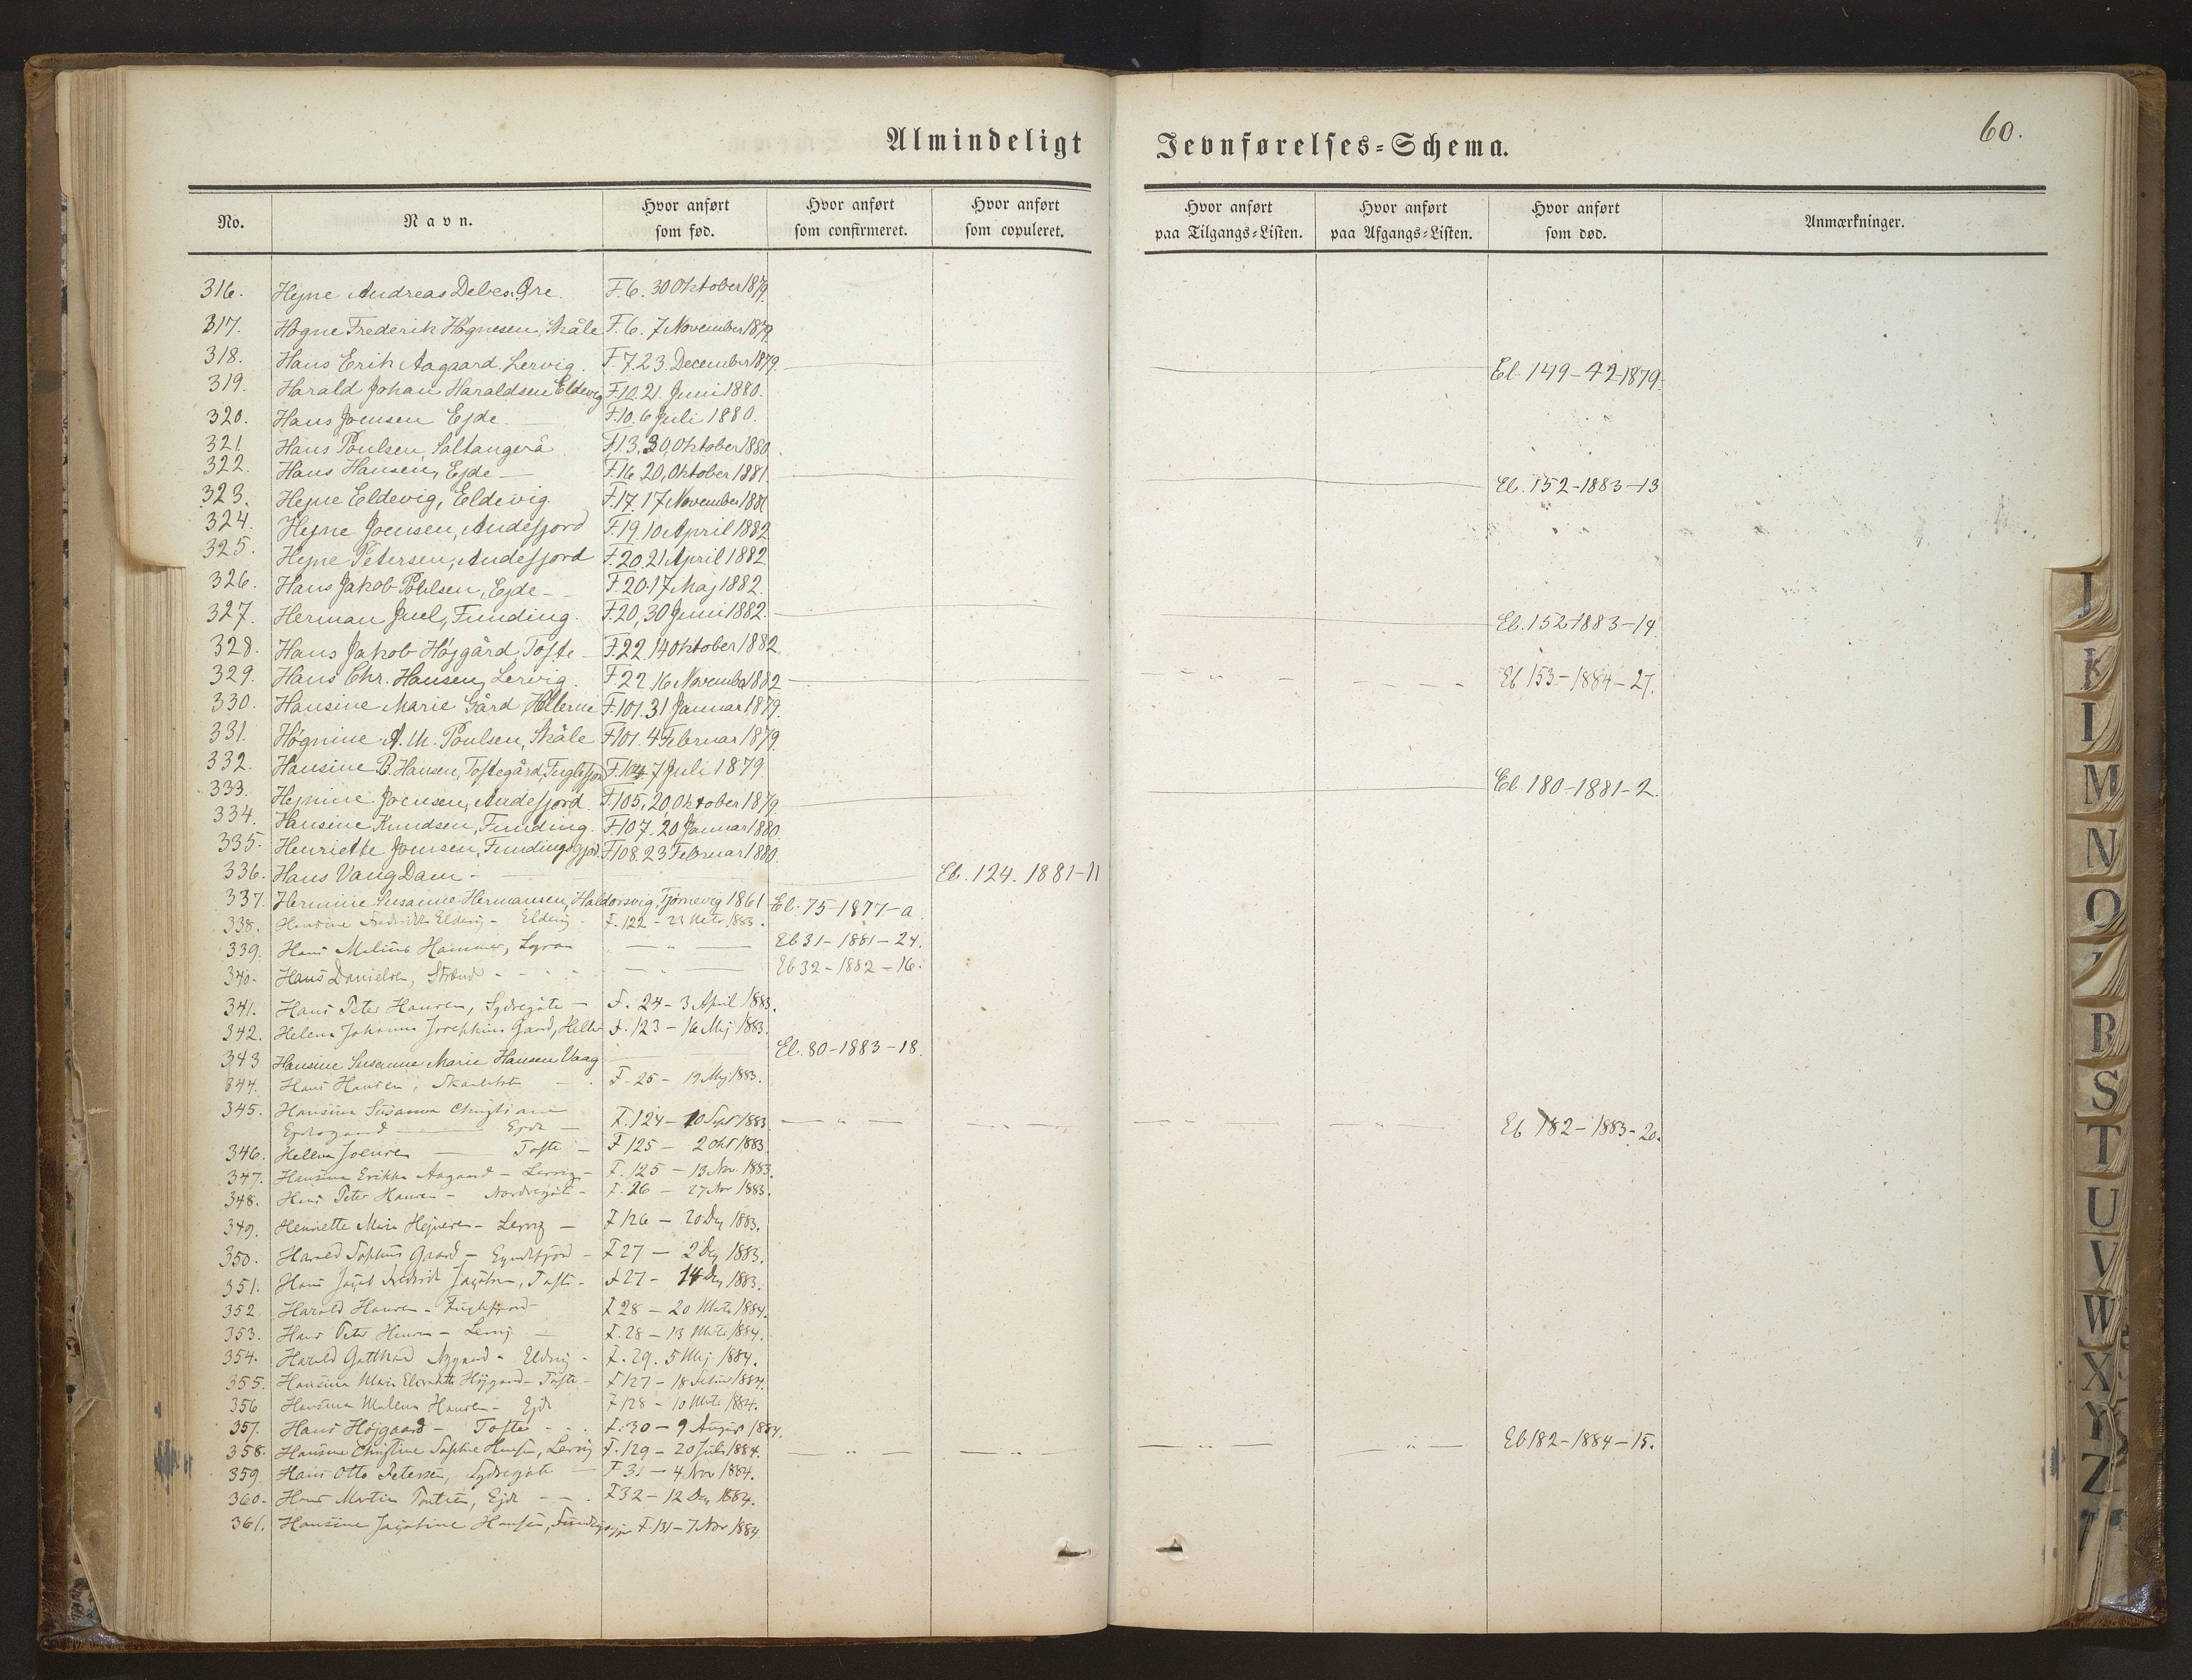 Almindeligt Jevnførelses-Schema.
60.
No. Navn. Hvor anført som fød. Hvor anført som confirmeret. Hvor anført som copuleret. Hvor anført paa Tilgangs-Listen. Hvor anført paa Afgangs-Listen. Hvor anført som død. Anmærkninger.
316. Hejne Andreas Debes. Øre. F. 6. 30 Oktober 1879.
317. Høgne Frederik Høgnesen, Skåle F. 6. 7 November 1879.
318. Hans Erik Aagaard. Lervig. F. 7. 23. December 1879. El. 149-42-1879.
319. Harald Johan Haraldsen Eldevig F 10. 21. Juni 1880.
320. Hans Joensen Ejde. F. 10. 6 Juli 1880.
321. Hans Poulsen, Saltangerå F. 13. 30, Oktober 1880
322. Hans Hansen, Ejde F. 16 20, Oktober 1881. El. 152-1883-13
323. Hejne Eldevig, Eldevig. F. 17. 17 November 1881
324. Hejne Joensen, Andefjord F. 19. 10 April 1882
325. Hejne Petersen, Andefjord F. 20. 21 April 1882
326. Hans Jakob Poulsen, Ejde F. 20. 17 Maj 1882.
327. Herman Juel, Funding. F. 20, 30 Juni 1882. El. 152-1883-14.
328. Hans Jakob Højgård Tofte F. 22. 14 Oktober 1882.
329. Hans Chr. Hansen, Lervig. F. 22 16 November 1882 El 153-1884-27.
330. Hansine Marie Gård Hellerne F. 101. 31 Januar 1879.
331. Høgnine A. M. Poulsen, Skåle F. 101. 4 Februar 1879.
332. Hansine B. Hansen, Toftegård, Fuglefjor F. 104. 7 Juli 1879.
333. Hejnine Joensen, Andefjord. F. 105, 20, Oktober 1879 El. 180-1881-2.
334. Hansine Knudsen, Funding. F. 107. 20 Januar 1880.
335. Henriette Joensen, Fundingsgjor. F. 108. 23 Februar 1880.
336. Hans Vang Dam - El. 124. 1881-11
337. Hermine Susanne Hermansen, Haldorsvig, Tjørnevig 1861 El. 75-1877-a.
338. Hansine Fredrikke Eldevig - Eldevig F. 122 - 23 Mrts 1883.
339. Hans Melius Hammer, " El 31-1881-24.
340. Hans Danielsen, Strønd " El 32-1882-16.
341. Hans Peter Hansen, Sydregøte F. 24 - 3 April 1883.
342. Helena Johanna Josephine Gaard, Heller F. 123 - 16 Mj 1883.
343 Hansine Susanne Marie Hansen Vaag El. 80-1883-18.
344. Hans Hansen, F. 25 - 19 Mj 1883.
345. Hansina Susanna Christiane
Ejde F. 124 - 10 Sept 1883 " " " " El 182-1883-20.
346. Helena Joensen Tofte F 125 - 2 Okt 1883.
347. Hansina Erikka Aagaard - Lervig - F. 125 - 13 Nov. 1883.
348. Hans Peter Hansen - Nordregøte - F. 26 - 27 Nov 1883.
349. Henriette Maria Hejnesen - Lervig F 126 - 20 Dec 1883.
350. Harald Sophus Gaard - F 27 - 2 Dec 1883.
351. Hans Jacob Fredrik Jacobsen, Tofte - F 27 - 14 Dec 1883.
352. Harald Hansen - Fuglefjord - F 28 - 20 Mrts 1884.
353. Hans Peter Hansen - Lervig F. 28 - 13 Mrts 1884.
354. Harald Gotthard Aagaard - Eldevig - F. 29. 5 Mj 1884.
355. Hansina Maria Elisabeth Højgaard - Tofte - F 127 - 18 Febr 1884.
356 Hansina Malena Hansen - Ejde F 128 - 10 Mrts 1884.
357. Hans Højgaard - Tofte F. 30 - 9 August 1884.
358. Hansine Christine Sophie Hansen, Lervig F. 129 - 20 Juli 1884. " " " " El 182-1884-15.
359. Hans Otto Petersen, Sydregøte F 31 - 4 Nov 1884.
360. Hans Martin Poulsen, Ejde F 32 - 12 Dec 1884.
361. Hansine Jacobine Hansen, Fundingsgjor F. 131 - 7 Nov 1884.
J
K
L
M
N
O
R
S
T
U
V
W
X
Y
Z